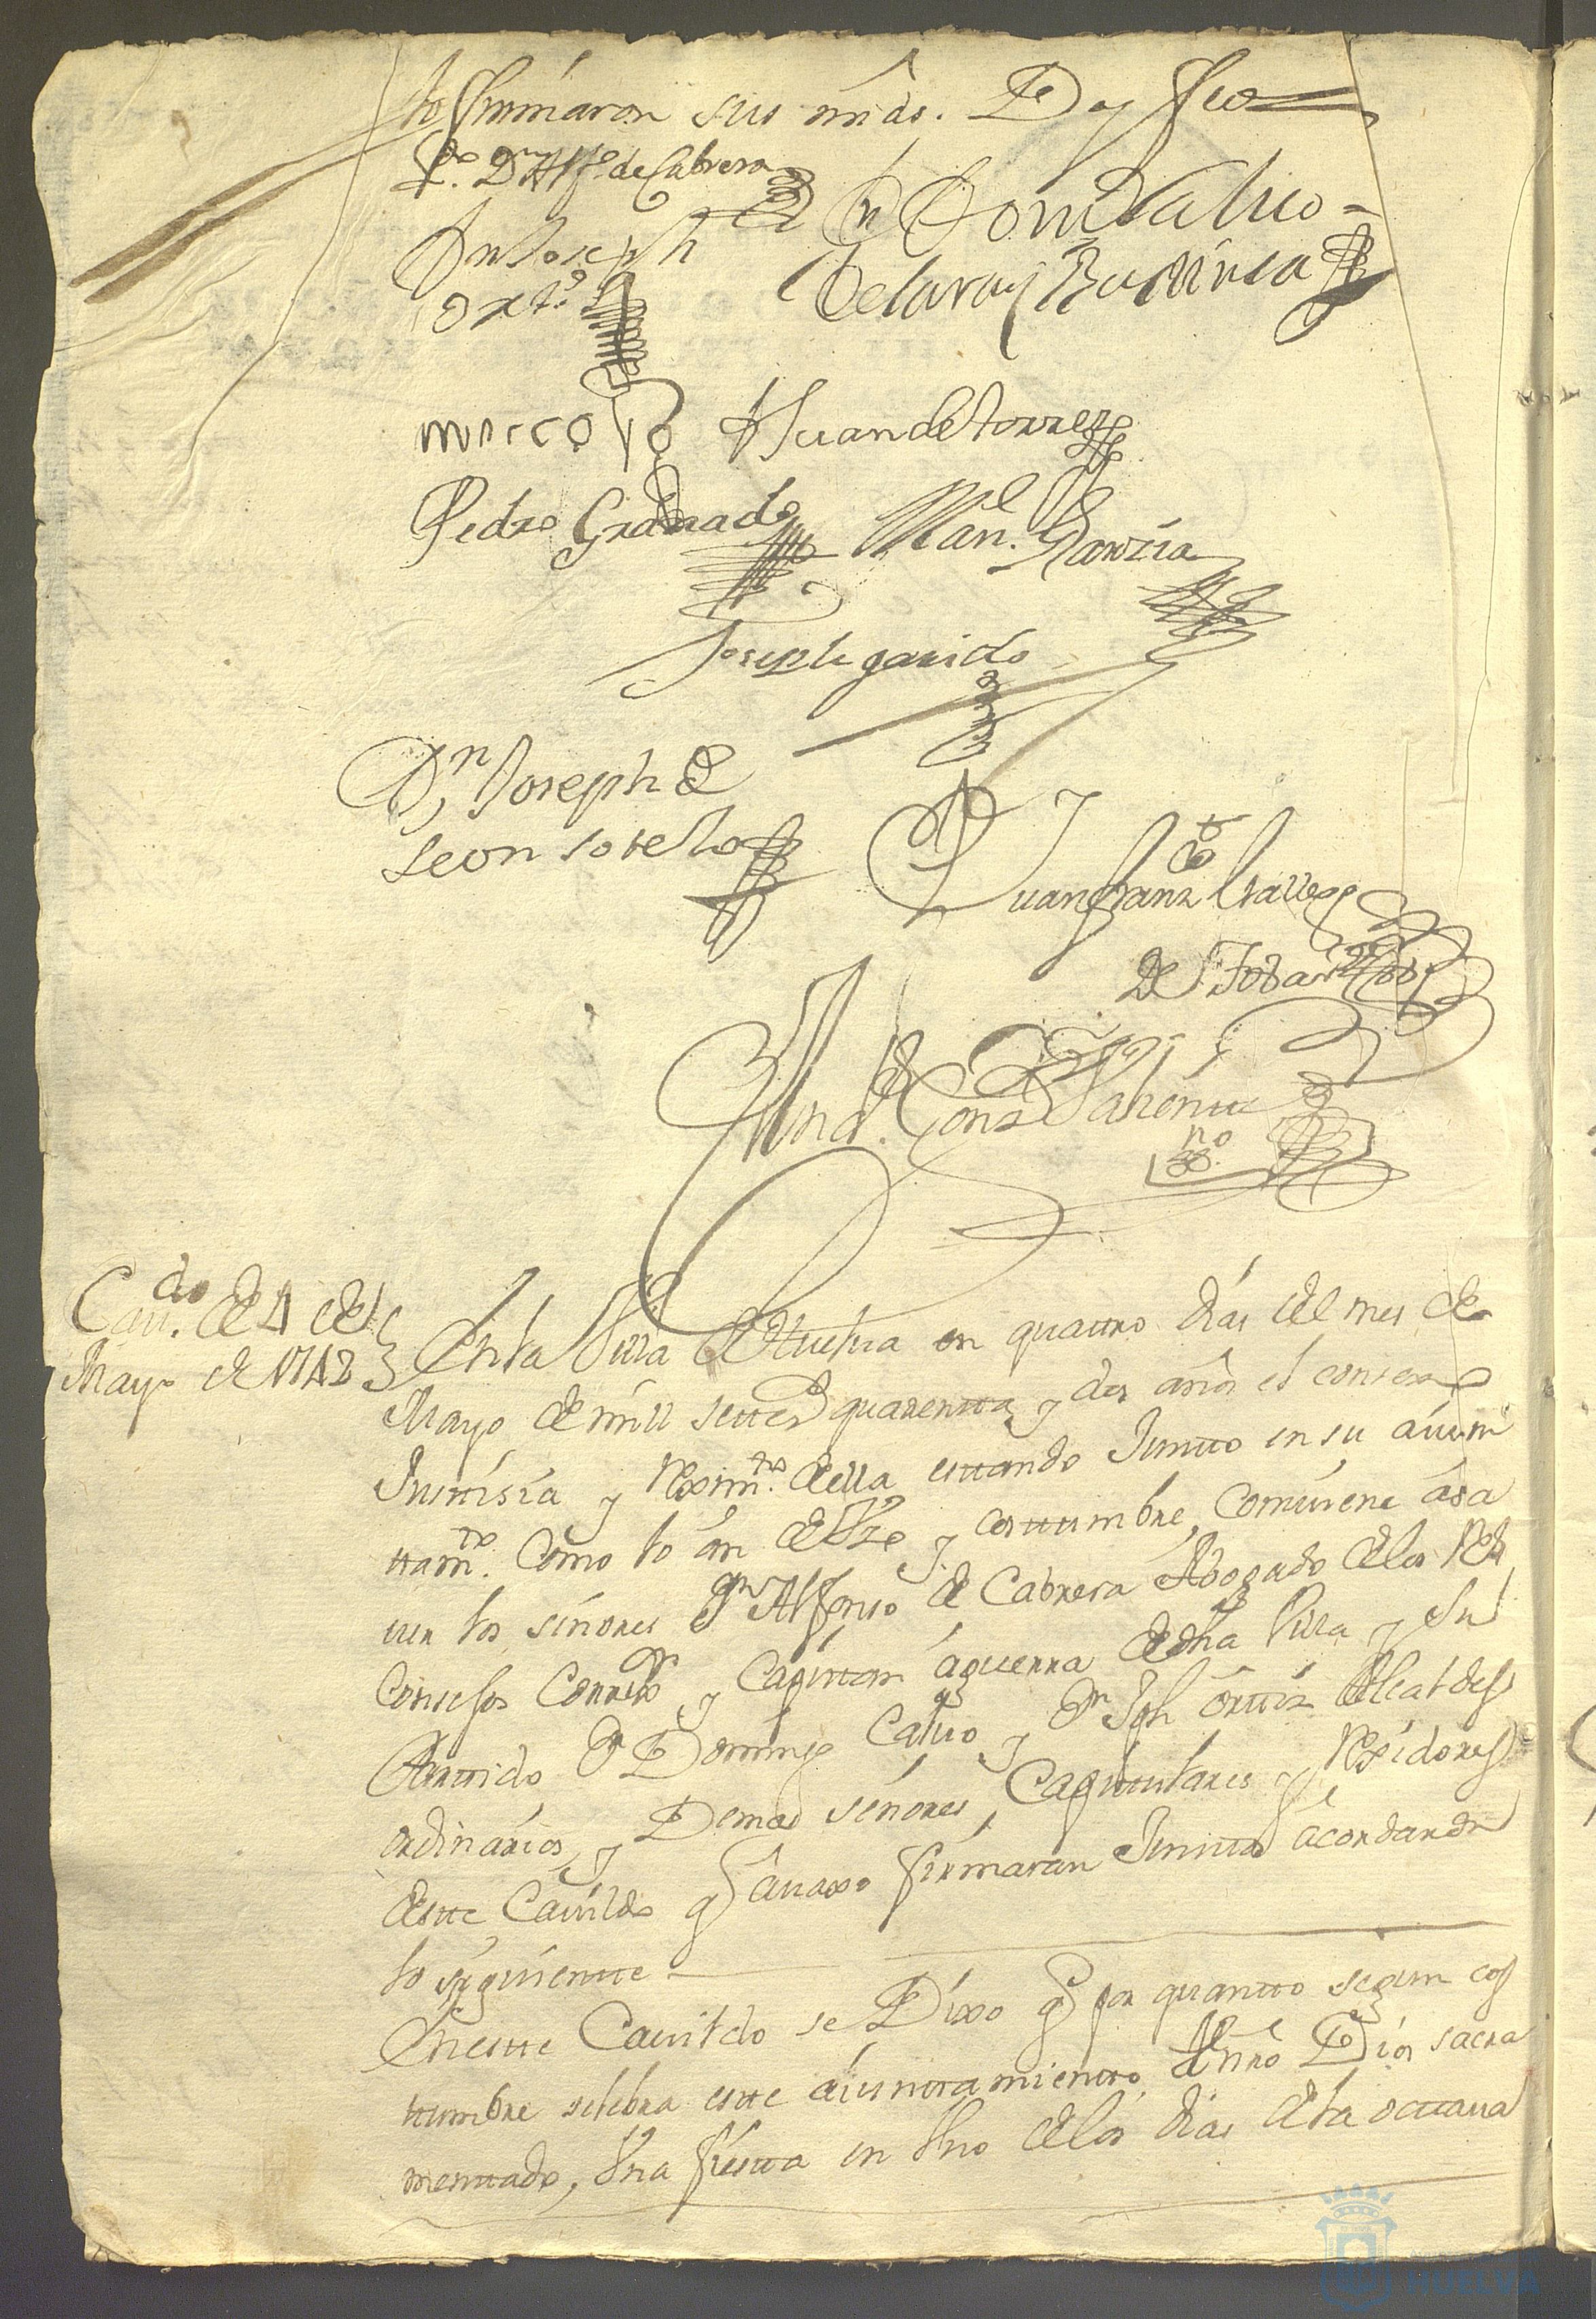 lo firmaron sus mrds. Doy fee
Ldo. Dn Alfo. de Cabrera
Dn Domº Calvo
Dn Joseph
de la ray Barriga
ortiz
marcos
Juan de torres
Pedro Granado
Man.l Garzia
Joseph garrido
Dn Joseph de
Leon sotelo
Juan franco
De Tobar
And. Gonz
no
Cavdo. de 4 de
Mayo de 1742
En la Villa de Huelva en quattro días del mes de
Mayo de mill settezos quarentta y dos años el consexo
Justtisia y Reximto. della esttando Juntto en su áiun
ttamto. Como lo án de Vzo y costtumbre, Combiene ása
uer los señores Dn Alfonso de Cabrera Abogado de los Rs
Consefos Correxor y Capittan águerra de dha Villa y Su
Parttido, Dn Domingo Calvo y Dn Jph orttiz Alcaldes
ordinários, y Demas señores Capittulares y Rexidores
destte Cavildo q auaxo firmaran Junttos ácordaron
lo siguientte
En estte Cavildo se Dixo q por quantto segun cos
tumbre selebra estte aiunttamientto, A Nro Dios sacra
menttado, Vna fiestta en Vno de los dias de la octtaua
HUELVA